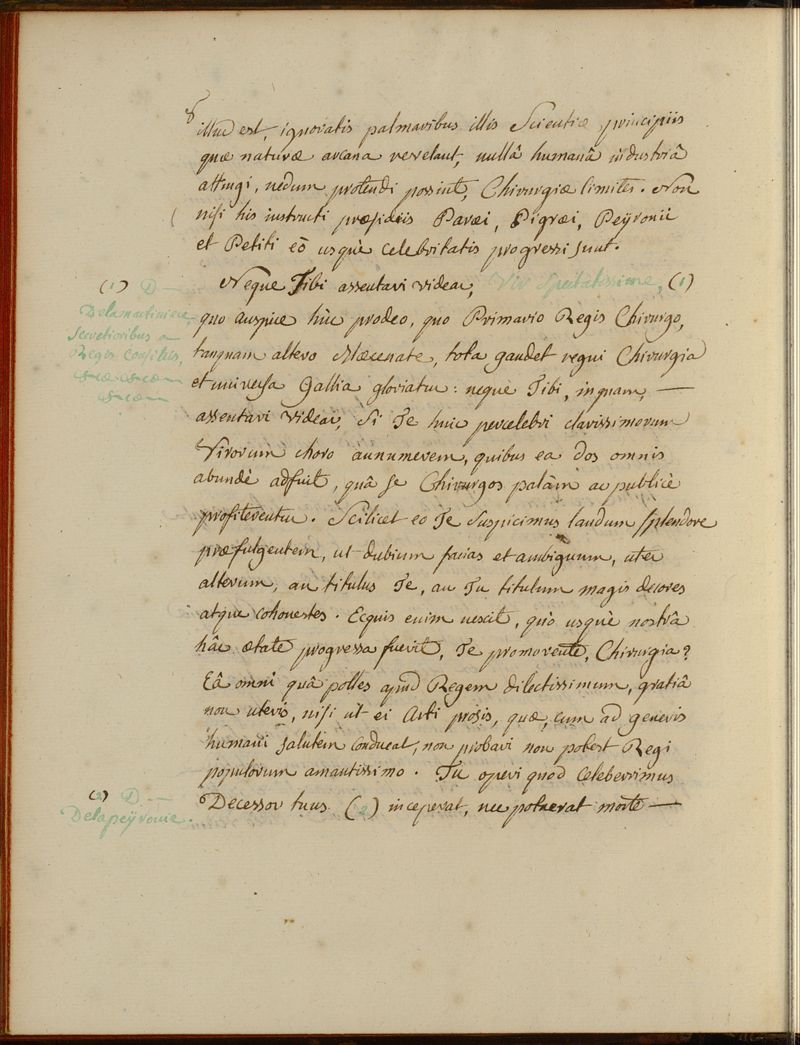 8
illud est, ignoratis palmaribus illis Scientiæ principiis
quæ naturæ arcana revelant, nullâ humanâ industriâ
attingi, nedum protendi possint, Chirurgiæ limites. Non
nisi his instructi præsidiis Paræi, Pigræi, Peÿronii
et Petiti eò usquè celebritatis progressi sunt.
Neque Tibi assentari videar, Vir Spectatissime, (1)
quo auspice hùc prodeo, quo Primario Regis Chirurgo,
tanquam altero Mæcenate, tota gaudet regni Chirurgia
et universa Gallia gloriatur: neque Tibi, inquam, —
assentari videar, Si Te huic percelebri clarissimorum
Virorum choro annumerem, quibus ea dos omnis
abundè adfuit, quâ se Chirurgos palàm ac publicè
profiterentur. Scilicet eo Te Suspicimus laudum splendore
præfulgentem, ut dubium facias et ambiguum, uter
alterum, an titulus Te, an Tu titulum magis decores
atque cohonestes. Ecquis enim nescit, quò usquè nostrâ
hâc ætate progressa fuerit, Te promovente, Chirurgia?
Eâ omni quâ polles apud Regem dilectissimum, gratiâ
non uteris, nisi ut ei Arti prosis, quæ, cum ad generis
humani salutem conducat, non probari non potest Regi
populorum amantissimo. Tu operi quod celeberrimus
Decessor tuus (2) inceperat, nec potuerat morte —
(1) D —
Delamartiniere,
Secretioribus a
Regis Consiliis,
&cæ &cæ
&cæ
(2) D. —
Delapeÿronie.